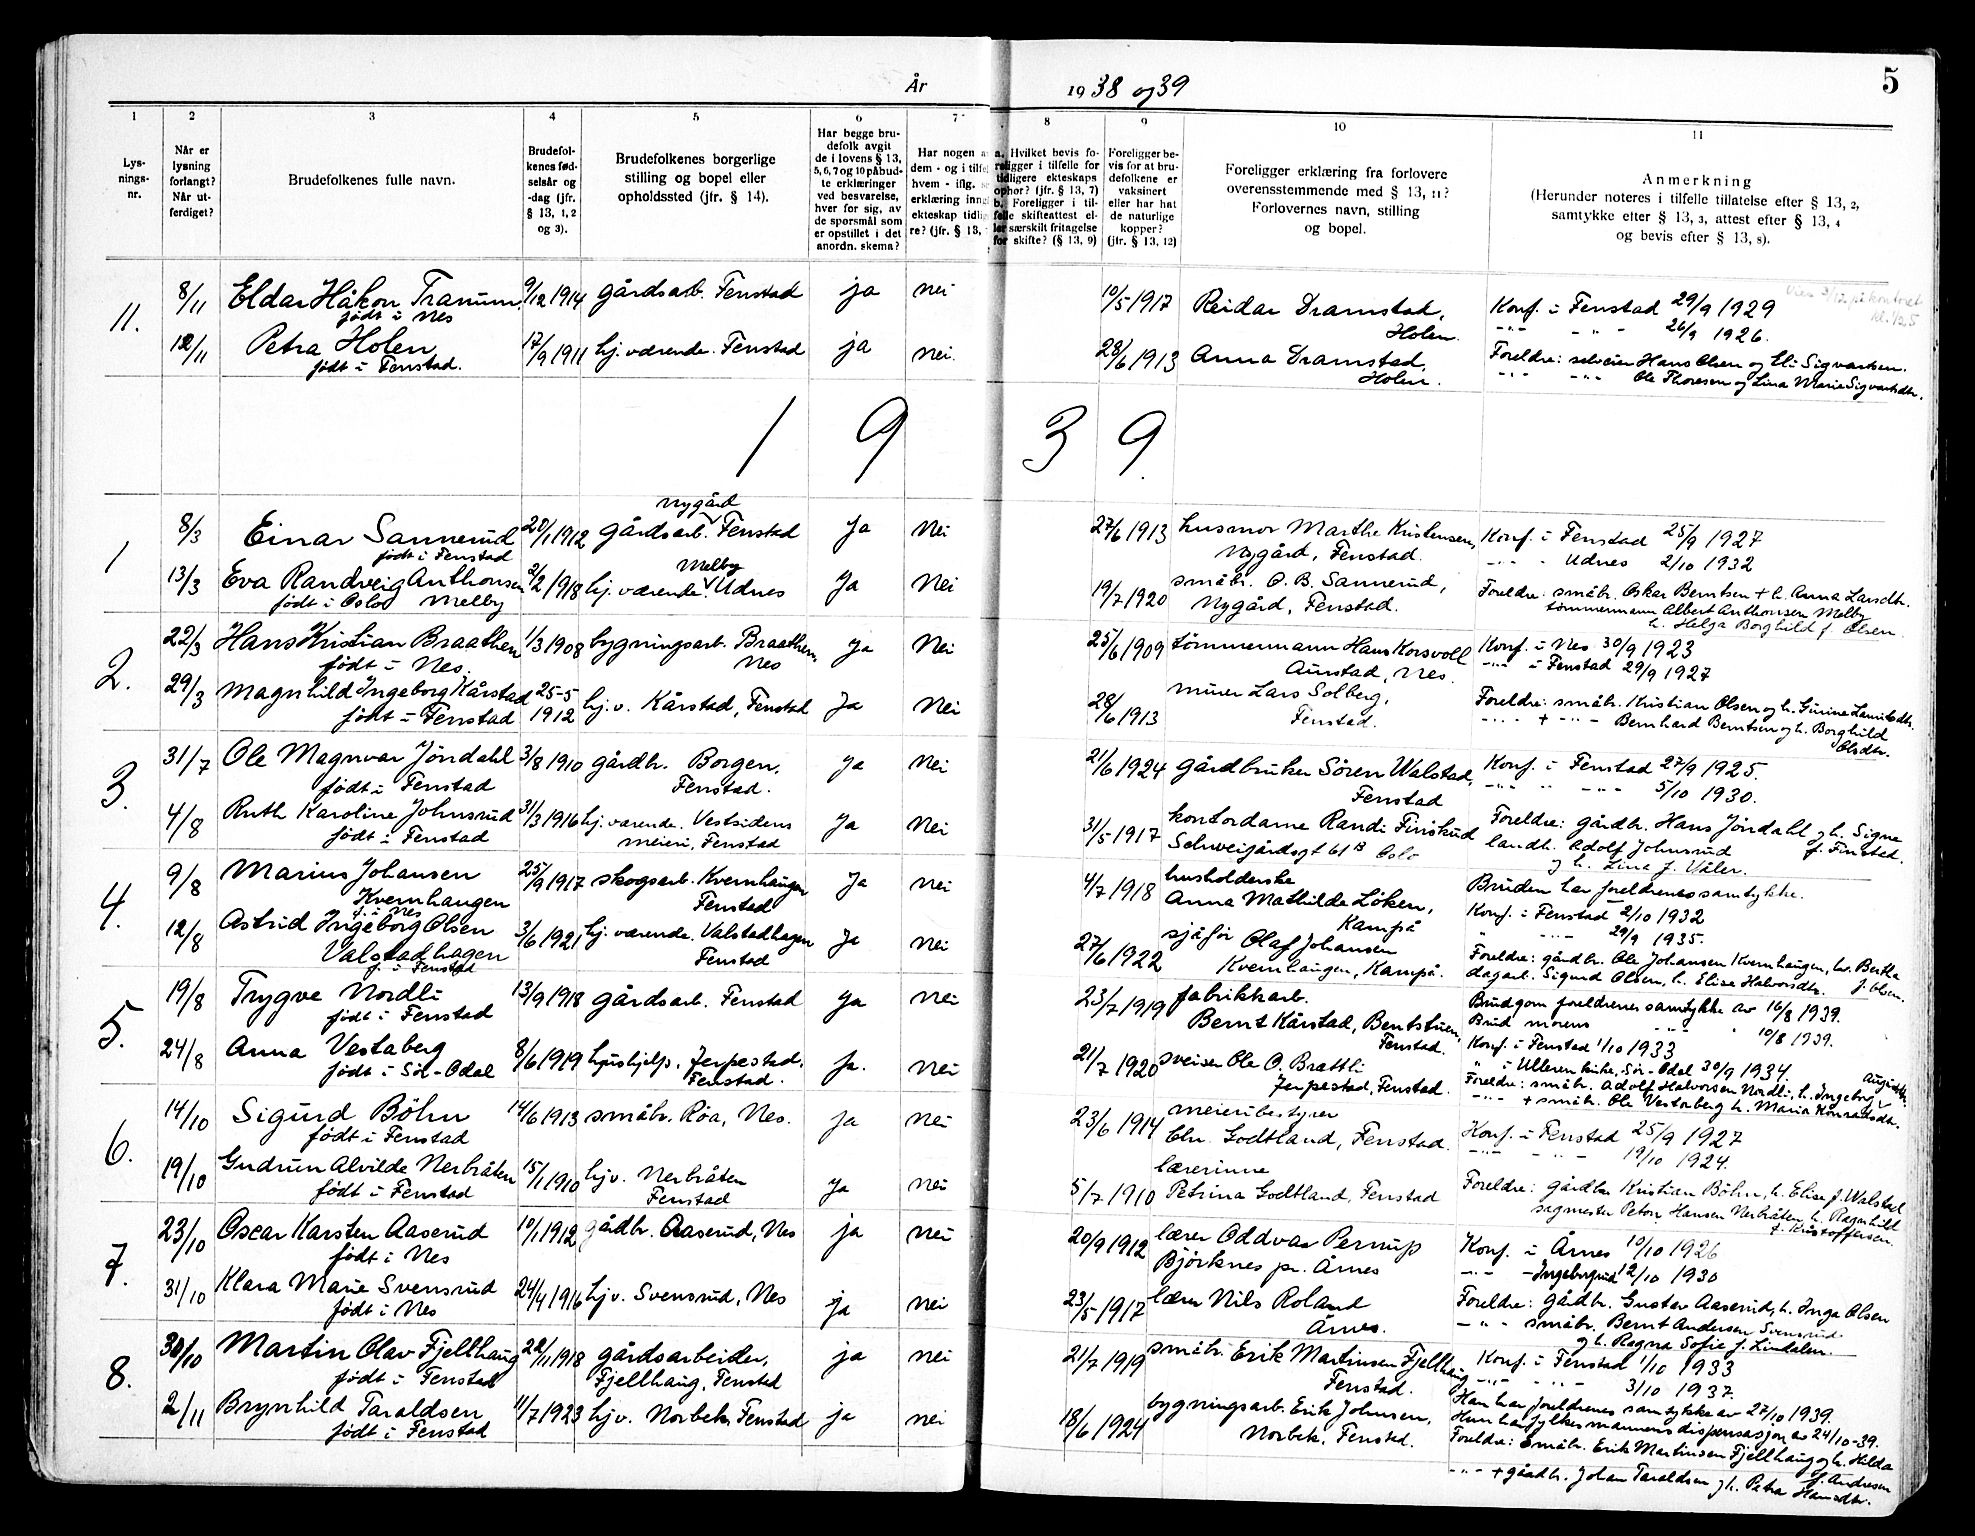 År 1938 og 39
5
1
2
3
4
5
6
7
8
9
10
11
Lys-
nings-
nr.
Når er
lysning
forlangt?
Når ut-
ferdiget?
Brudefolkenes fulle navn.
Brudefol-
kenes fød-
selsår og
-dag (jfr.
§ 13, 1, 2
og 3).
Brudefolkenes borgerlige
stilling og bopel eller
opholdssted (jfr. § 14).
Har begge bru-
defolk avgit
de i lovens § 13,
5, 6, 7 og 10 påbud-
te erklæringer
ved besvarelse,
hver for sig, av
de spørsmål som
er opstillet i det
anordn. skema?
Har nogen a
dem - og i tilfel
hvem - iflg. s
erklæring inn
ekteskap tidli
re? (jfr. § 13,
a. Hvilket bevis fo-
religger i tilfelle for
tidligere ekteskaps
ophør? (jfr. § 13, 7)
b. Foreligger i til-
felle skifteattest el-
ler særskilt fritagelse
for skifte? (§ 13, 9)
Foreligger be-
vis for at bru-
defolkene er
vaksinert
eller har hat
de naturlige
kopper?
(jfr. § 13, 12)
Foreligger erklæring fra forlovere
overensstemmende med § 13, 11?
Forlovernes navn, stilling
og bopel.
Anmerkning
(Herunder noteres i tilfelle tillatelse efter § 13, 2,
samtykke efter § 13, 3, attest efter § 13, 4
og bevis efter § 13, 8).
11. 8/11 Eldar Håkon Tranum 9/12 1914 gårdsarb. Fenstad ja nei 10/5 1917 Reidar Dramstad, Konf. i Fenstad 29/9 1929
født i Nes Holen. -"- - " - 26/9 1926.
12/11 Petra Holen 17/9 1911 hj. værende. Fenstad ja nei. 28/6 1913 Anna Dramstad, Foreldre: selveier Hans Olsen og Eli Sigvartsen.
født i Fenstad. Holen. -"- -"- Ole Thoresen og Lina Marie Sigvartsdtr.
1 9 3 9.
Nygård
1 8/3 Einar Sannerud 20/1 1912 gårdsarb. Fenstad Ja Nei 27/6 1913 husmor Marthe Kristensen, Konf. i Fenstad 25/9 1927
født i Fenstad Nygård, Fenstad. -"- - Udnes 2/10 1932
Melby
13/3 Eva Randveig Anthonsen 2/2 1918 hj. værende. Udnes Ja Nei 19/7 1920 småbr. O. B. Sannerud, Foreldre: småbr. Oskar Berntsen + h. Anna Larsdtr.
født i Oslo Melby Nygård, Fenstad. tømmermann Albert Anthonsen Melby
h. Helga Borghild f. Olsen.
2. 22/3 Hans Kristian Braathen 1/3 1908 bygningsarb. Braathen, Ja Nei 25/6 1909 tømmermann Hans Korsvoll Konf. i Nes 30/9 1923
født i Nes. Nes Aunstad, Nes. -"- i Fenstad 29/9 1927
29/3 Magnhild Ingeborg Kårstad 25-5 1912 hj. v. Kårstad, Fenstad Ja Nei 28/6 1913 murer Lars Solberg, Foreldre: småbr. Kristian Olsen og h. Gurine Lauritsdtr.
født i Fenstad Fenstad. -"- + -"- Bernhard Berntsen og h. Borghild
Olsdtr.
3. 31/7 Ole Magnvar Jöndahl 3/8 1910 gårdbr. Borgen, Ja Nei 21/6 1924 gårdbruker Sören Walstad, Konf. i Fenstad 27/9 1925.
født i Fenstad Fenstad. Fenstad -"- " -"- 5/10 1930.
4/8 Ruth Karoline Johnsrud 31/3 1916 hj. værende. Vestsidens Ja Nei 31/5 1917 kontordame Randi Finskud Foreldre: gårdbr. Hans Jöndahl og h. Signe
født i Fenstad meieri, Fenstad Schweigårdsgt 61 B Oslo landh. Adolf Johnsrud f. Finstad.
og h. Lina f. Våler.
4. 9/8 Marius Johansen 25/9 1917 skogsarb. Kvernhaugen Ja Nei 4/7 1918 husholderske Bruden har foreldrenes samtykke.
Kvernhaugen Fenstad Anna Mathilde Löken, Konf. i Fenstad 2/10 1932
f. i Nes Kampå " -"- 29/9 1935.
12/8 Astrid Ingeborg Olsen 3/6 1921 hj. værende. Valstadhagen Ja nei 27/6 1922 sjåför Olaf Johansen Foreldre: gårdbr. Ole Johansen Kvernhaugen, h. Bertha
Valstadhagen Fenstad Kvernhaugen, Kampå. dagarb. Sigurd Olsen, h. Elise Halvorsdtr. f. Olsen.
f. i Fenstad
5. 19/8 Trygve Nordli 13/9 1918 gårdsarb. Fenstad Ja Nei 23/7 1919 fabrikkarb. Brudgom foreldrenes samtykke av 16/8 1939.
født i Fenstad Bernt Kårstad, Bentstuen, Brud morens -"- " 10/8 1939.
Fenstad. Konf. i Fenstad 1/10 1933
24/8 Anna Vestaberg 8/6 1919 hushjelp. Jerpestad. Ja. nei 21/7 1920 sveiser Ole O. Bråttli " i Ulleren kirke, Sör-Odal 30/9 1934.
født i Sör-Odal Fenstad. Jerpestad, Fenstad. Foreldre: småbr. Adolf Halvorsen Nordli, h. Ingeborg
-"- + småbr. Ole Vestaberg h. Maria Konradsdtr.
6. 14/10 Sigurd Böhn 14/6 1913 småbr. Röa, Nes. ja nei 23/6 1914 meieribestyrer Konf. i Fenstad 25/9 1927
født i Fenstad Chr. Godtland, Fenstad. -"- - " - 19/10 1924.
19/10 Gudrun Alvilde Nerbråten 15/1 1910 hj v. Nerbråten ja nei 5/7 1910 lærerinne Foreldre: gårdbr Kristian Böhn, h. Elise f. Walstad
født i Fenstad Fenstad Petrina Godtland, Fenstad sagmester Peton Hansen Nerbråten h. Ragnhild
f. Kristoffersen.
7. 23/10 Oscar Karsten Aaserud 10/1 1912 gårdbr. Aaserud, Nes ja nei 20/9 1912 lærer Oddvar Perrup Konf. i Årnes 10/10 1926
født i Nes Björknes pr. Årnes -"- - Ingeborgrud 12/10 1930
31/10 Klara Marie Svensrud 24/4 1916 hj v. Svensrud, Nes ja nei 23/5 1917 lærer Nils Roland Foreldre: gårdbr. Gustav Aaserud, h. Inga Olsen
født i Nes Årnes. -"- småbr. Bernt Andersen Svensrud
og h. Ragna Sofie f. Lindalen.
8. 30/10 Martin Olav Fjellhaug 22/11 1918 gårdsarbeider, ja nei 21/7 1919 småbr. Erik Martinsen Fjellhaug Konf. i Fenstad 1/10 1933
født i Fenstad Fjellhaug, Fenstad Fenstad. -"- - " - 3/10 1937.
Han har foreldrenes samtykke av 27/10 1939.
2/11 Brynhild Taraldsen 11/7 1923 hj v. Norbek, Fenstad ja nei 18/6 1924 bygningsarb. Erik Johnsen, Hun har fylkesmannens dispensasjon av 24/10-39.
født i Fenstad Norbek, Fenstad. Foreldre: Småbr. Erik Martinsen Fjellhaug og h. Hilda
f. Andresen
-"- + gårdbr. Johan Taraldsen og h. Petra Hansdtr.